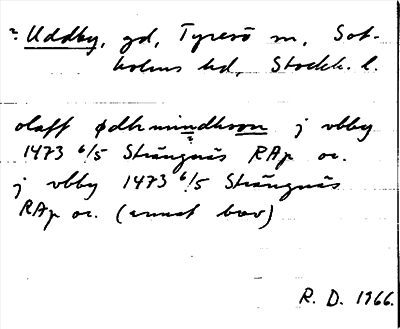 ? Uddby, gd, Tyresö sn, Sot-
holms hd, Stockh. l.
olaff ødhmindhson j vbby
1473 6/5 Strängnäs RAp or.
j vbby 1473 6/5 Strängnäs
RAp or. (annat brev)
R. D. 1966.